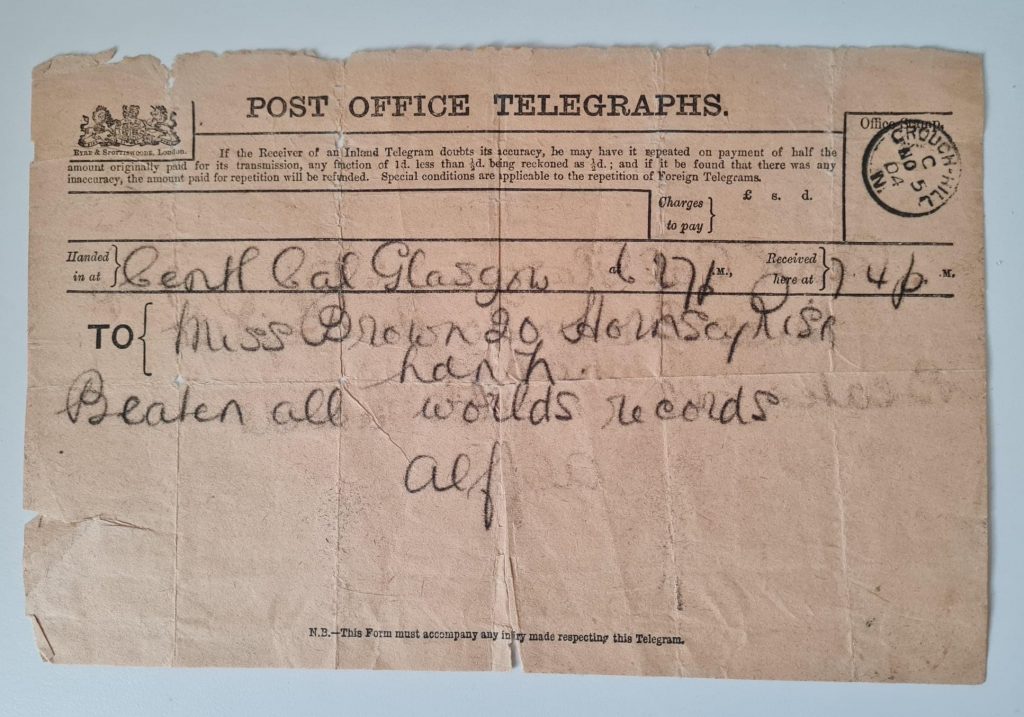 POST OFFICE TELEGRAPHS.
EYRE & SPOTTISWOODE, LONDON.
Office Stamp.
CROUCH-HILL N.
C
NO 5
04
If the Receiver of an Inland Telegram doubts its accuracy, he may have it repeated on payment of half the
amount originally paid for its transmission, any fraction of 1d. less than ½d. being reckoned as ½d.; and if it be found that there was any
inaccuracy, the amount paid for repetition will be refunded. Special conditions are applicable to the repetition of Foreign Telegrams.
Charges to pay } £ s. d.
Handed in at } Centl Cal Glasgow at 6 27 p M., Received here at } 7 4 p. M.
TO { Miss Brown 20 Hornsey Rise
Ldn N.
Beaten all worlds records
Alf
N.B.—This Form must accompany any inquiry made respecting this Telegram.